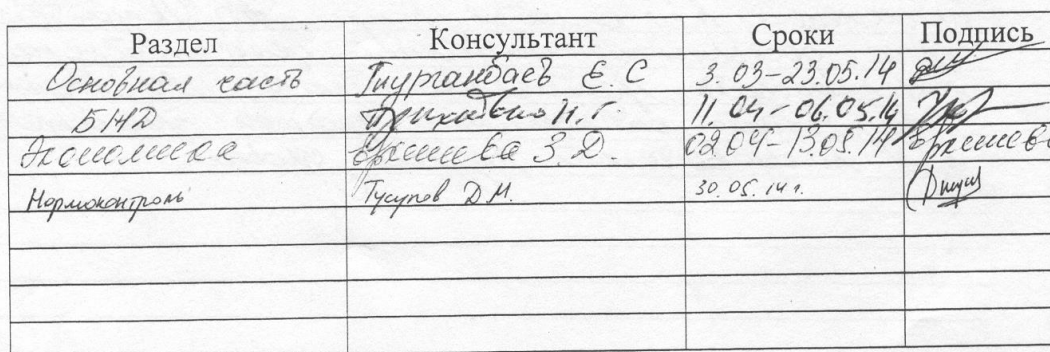 Раздел Консультант Сроки Подпись
Основная часть Тнурганбаев Е. С 3.03-23.05.14
БЖД Приходько Н.Г. 11.04-06.05.14
Экономика Еркешева З.Д. 02.04-13.05.14 Еркешева
Нормоконтроль Тусупов Д.М. 30.05.14 г.